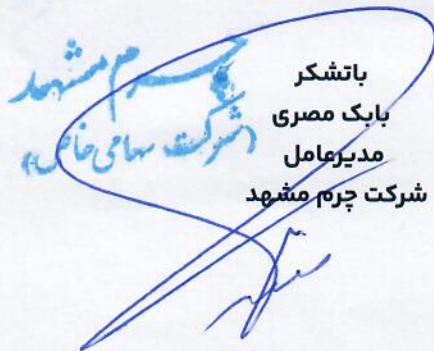 چرم مشهد
(شرکت سهامی خاص)
باتشکر
بابک مصری
مدیرعامل
شرکت چرم مشهد